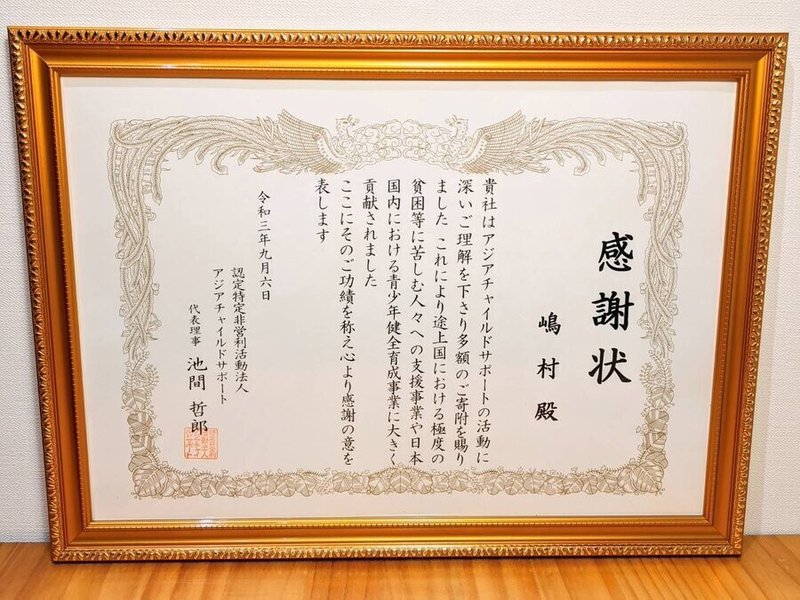 感謝状
嶋村 殿
貴社はアジアチャイルドサポートの活動に
深いご理解を下さり多額のご寄附を賜り
ました これにより途上国における極度の
貧困等に苦しむ人々への支援事業や日本
国内における青少年健全育成事業に大きく
貢献されました
ここにそのご功績を称え心より感謝の意を
表します
令和三年九月六日
認定特定非営利活動法人
アジアチャイルドサポート
代表理事 池間 哲郎